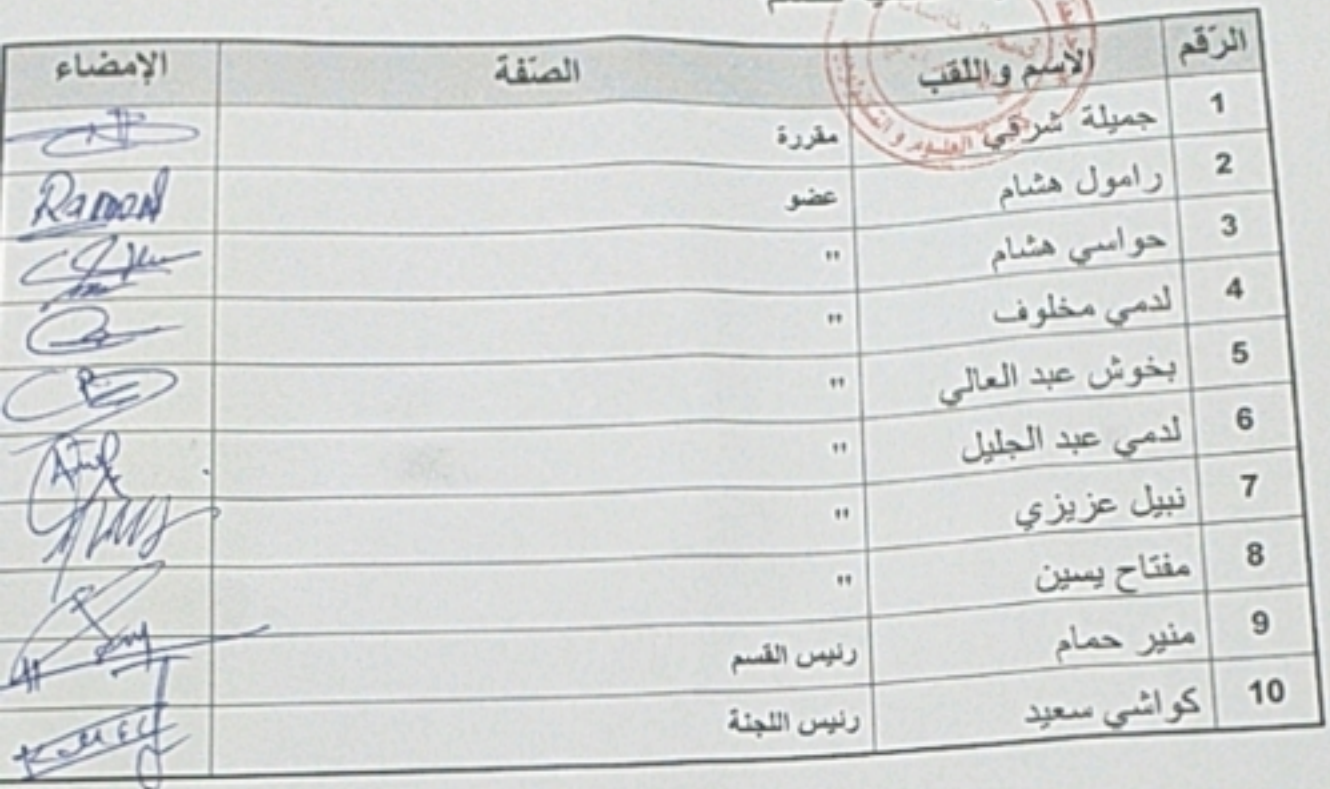 الرّقم الاسم واللقب الصّفة الإمضاء
1 جميلة شرقي مقررة
2 رامول هشام عضو
3 حواسي هشام "
4 لدمي مخلوف "
5 بخوش عبد العالي "
6 لدمي عبد الجليل "
7 نبيل عزيزي "
8 مفتاح يسين "
9 منير حمام رئيس القسم
10 كواشي سعيد رئيس اللجنة